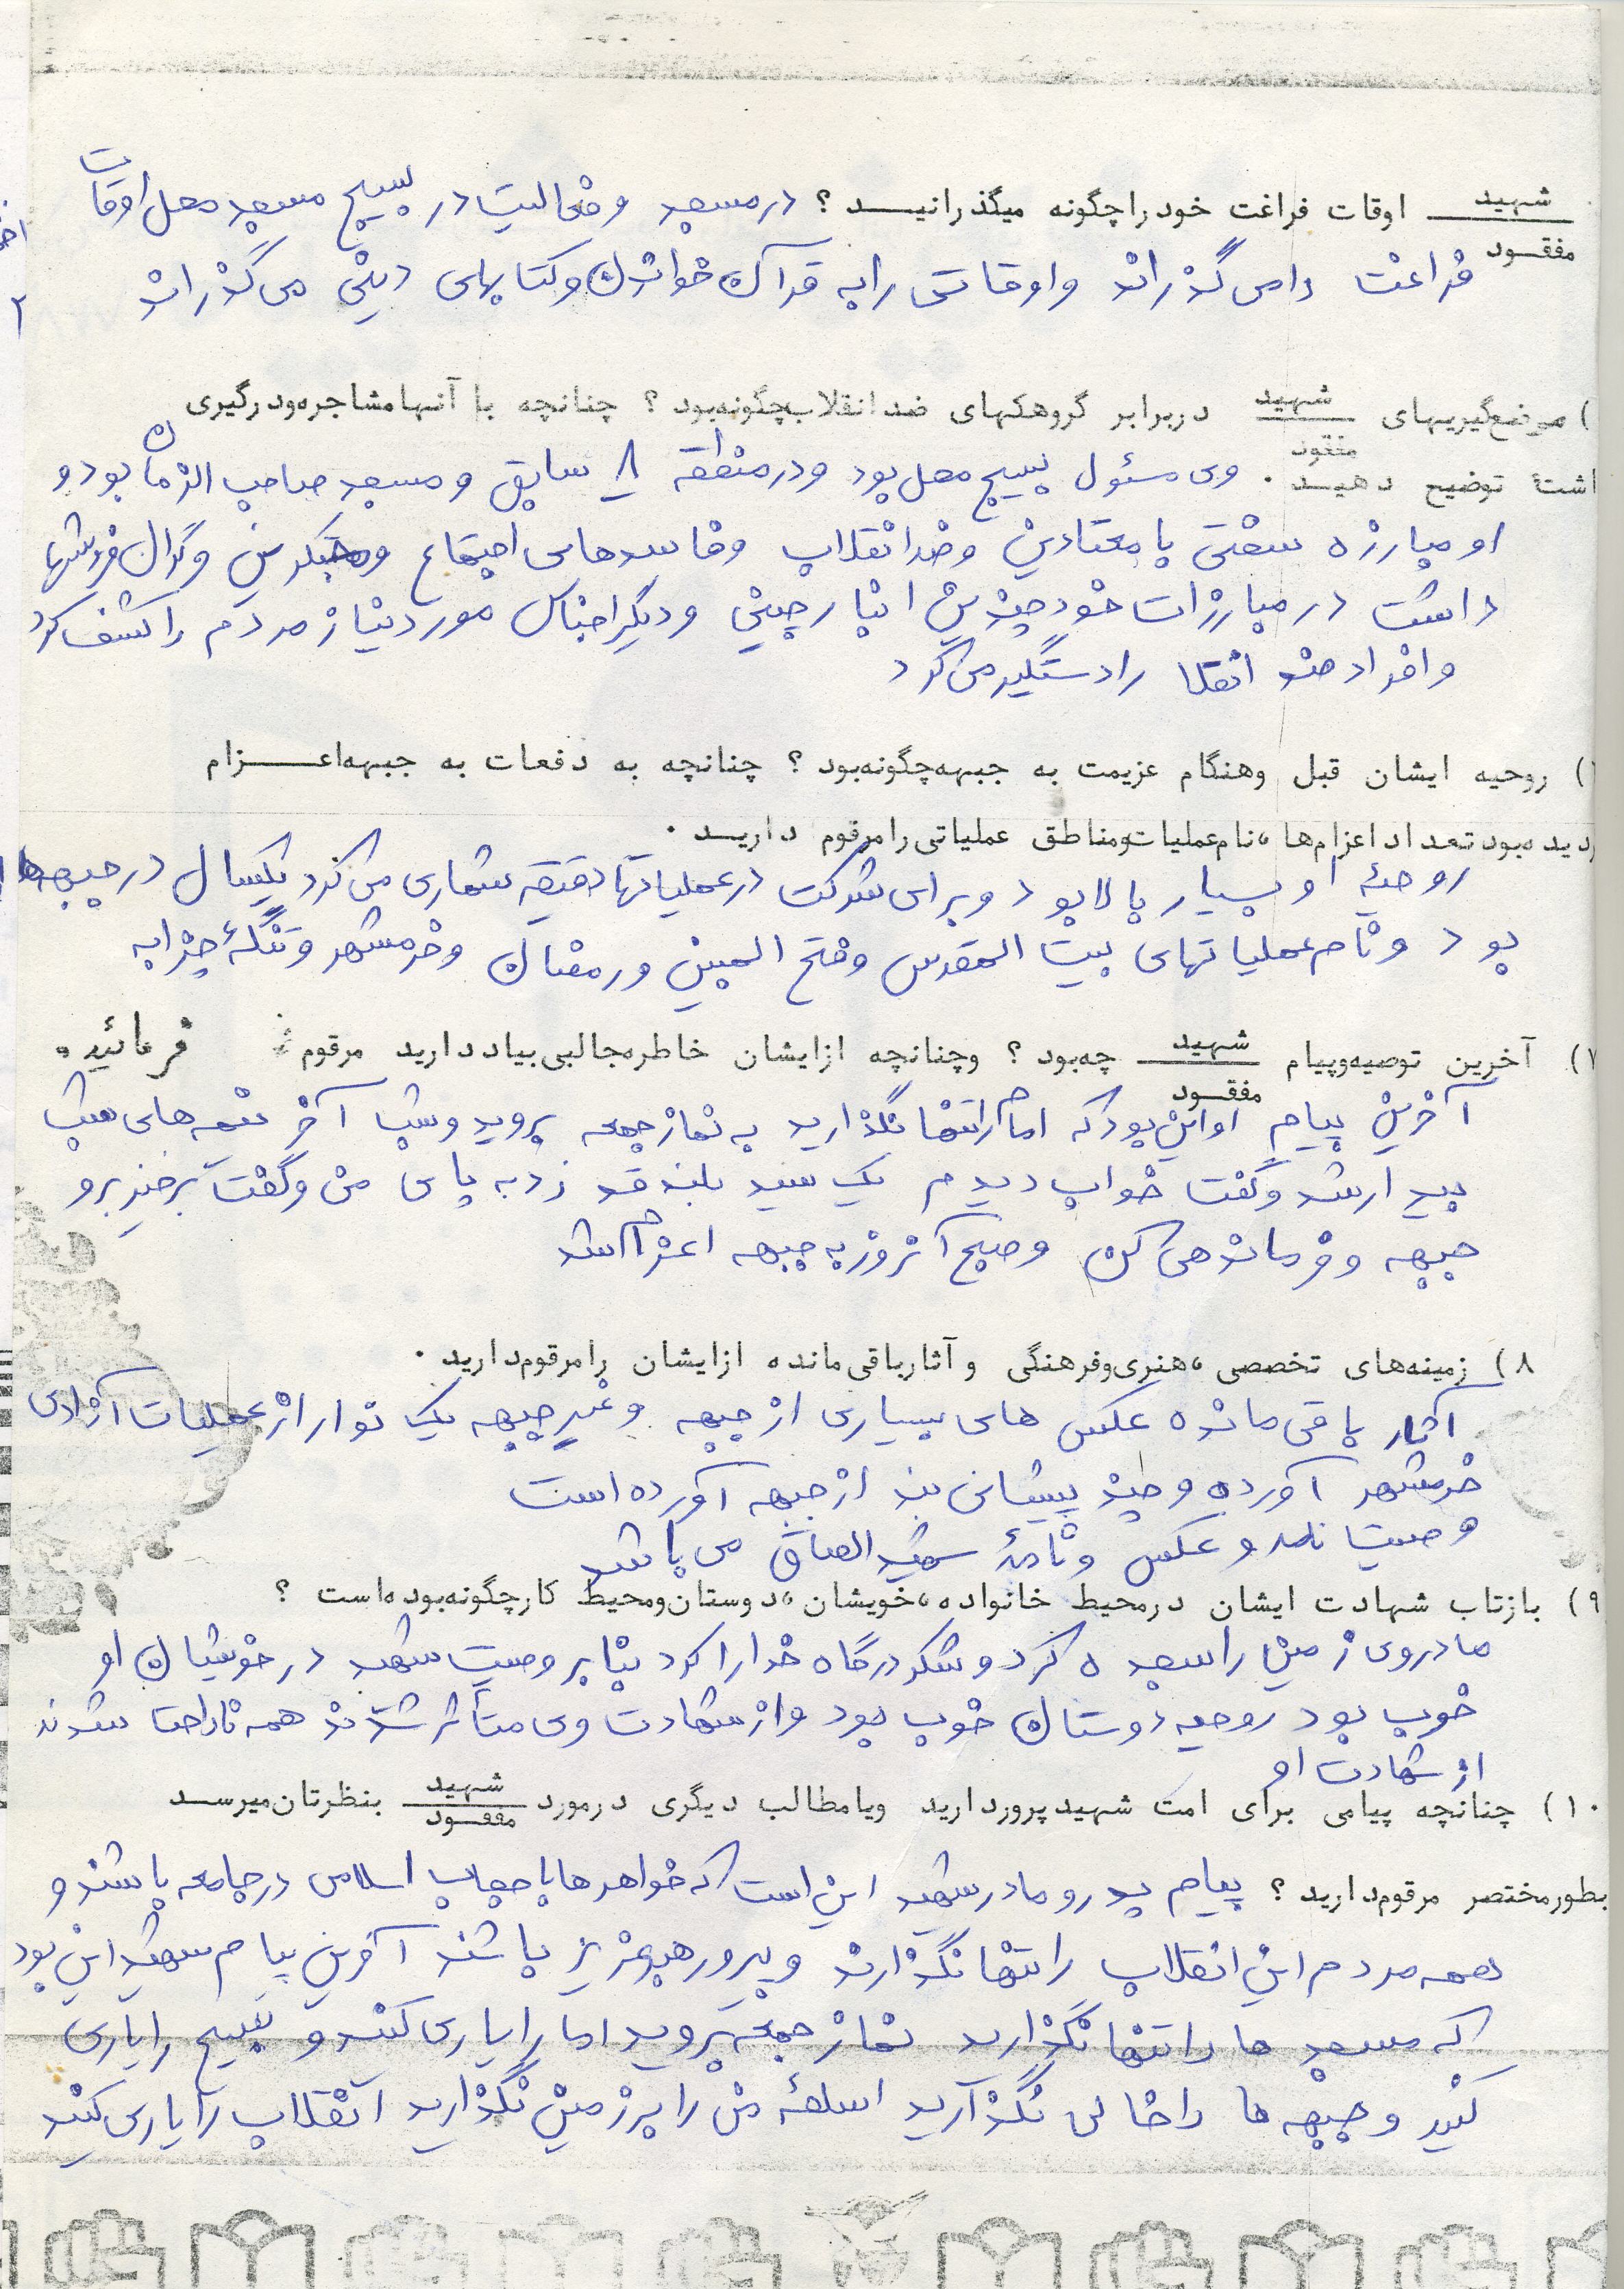 شهید
مفقود اوقات فراغت خود را چگونه میگذرانید ؟ در مسجد و فعالیت در بسیج مسجد محل اوقات
فراغت را می گذراند و اوقاتی را به قرآن خواندن و کتابهای دینی می گذراند
) موضع‌گیریهای شهید
مفقود در برابر گروهکهای ضد انقلاب چگونه بود ؟ چنانچه با آنها مشاجره و درگیری
اشت توضیح دهید . وی مسئول بسیج محل بود و در منطقه ۸ سابق و مسجد صاحب الزمان بود و
او مبارزه سختی با معتادین و ضد انقلاب و فاسدهای اجتماع و محتکرین و گران فروشها
داشت در مبارزات خود چندین انبار چینی و دیگر اجناس مورد نیاز مردم را کشف کرد
و افراد ضد انقلا را دستگیر می کرد
) روحیه ایشان قبل و هنگام عزیمت به جبهه چگونه بود ؟ چنانچه به دفعات به جبهه اعزام
ردیده بود تعداد اعزام‌ها ، نام عملیات و مناطق عملیاتی را مرقوم دارید .
روحیۀ او بسیار بالا بود و برای شرکت در عملیاتها دقیقه شماری می کرد یکسال در جبهه ها
بود و نام عملیاتهای بیت المقدس و فتح المبین و رمضان و خرمشهر و تنگۀ چزابه
۷) آخرین توصیه و پیام شهید
مفقود چه بود ؟ و چنانچه از ایشان خاطره جالبی بیاد دارید مرقوم فرمائید .
آخرین پیام او این بود که امام را تنها نگذارید به نماز جمعه بروید و شب آخر نیمه های شب
بیدار شد و گفت خواب دیدم یک سید بلند قد زد به پای من و گفت برخیز برو
جبهه و فرماندهی کن و صبح آنروز به جبهه اعزام شد
۸) زمینه‌های تخصصی ، هنری و فرهنگی و آثار باقی مانده از ایشان را مرقوم دارید .
آثار باقی مانده عکس های بسیاری از جبهه و غیر جبهه یک نوار از عملیات آزادی
خرمشهر آورده و چند پیشانی بند از جبهه آورده است
وصیت نامه و عکس و نامۀ شهید الصاق می باشد
۹) بازتاب شهادت ایشان در محیط خانواده ، خویشان ، دوستان و محیط کار چگونه بوده است ؟
مادر وی زمین را سجده کرد و شکر درگاه خدا را کرد بنا بر وصیت شهید در خویشان او
خوب بود روحیه دوستان خوب بود و از شهادت وی متأثر شدند همه ناراحت شدند
از شهادت او
۱۰) چنانچه پیامی برای امت شهید پرور دارید و یا مطالب دیگری در مورد شهید
مفقود بنظرتان میرسد
بطور مختصر مرقوم دارید ؟ پیام پدر و مادر شهید این است که خواهرها با حجاب اسلامی در جامعه باشند و
همه مردم این انقلاب را تنها نگذارند و پیرو رهبر عزیز باشند آخرین پیام شهید این بود
که مسجد ها را تنها نگذارید نماز جمعه بروید امام را یاری کنید و بسیج را یاری
کنید و جبهه ها را خالی نگذارید اسلحۀ من را بر زمین نگذارید انقلاب را یاری کنید